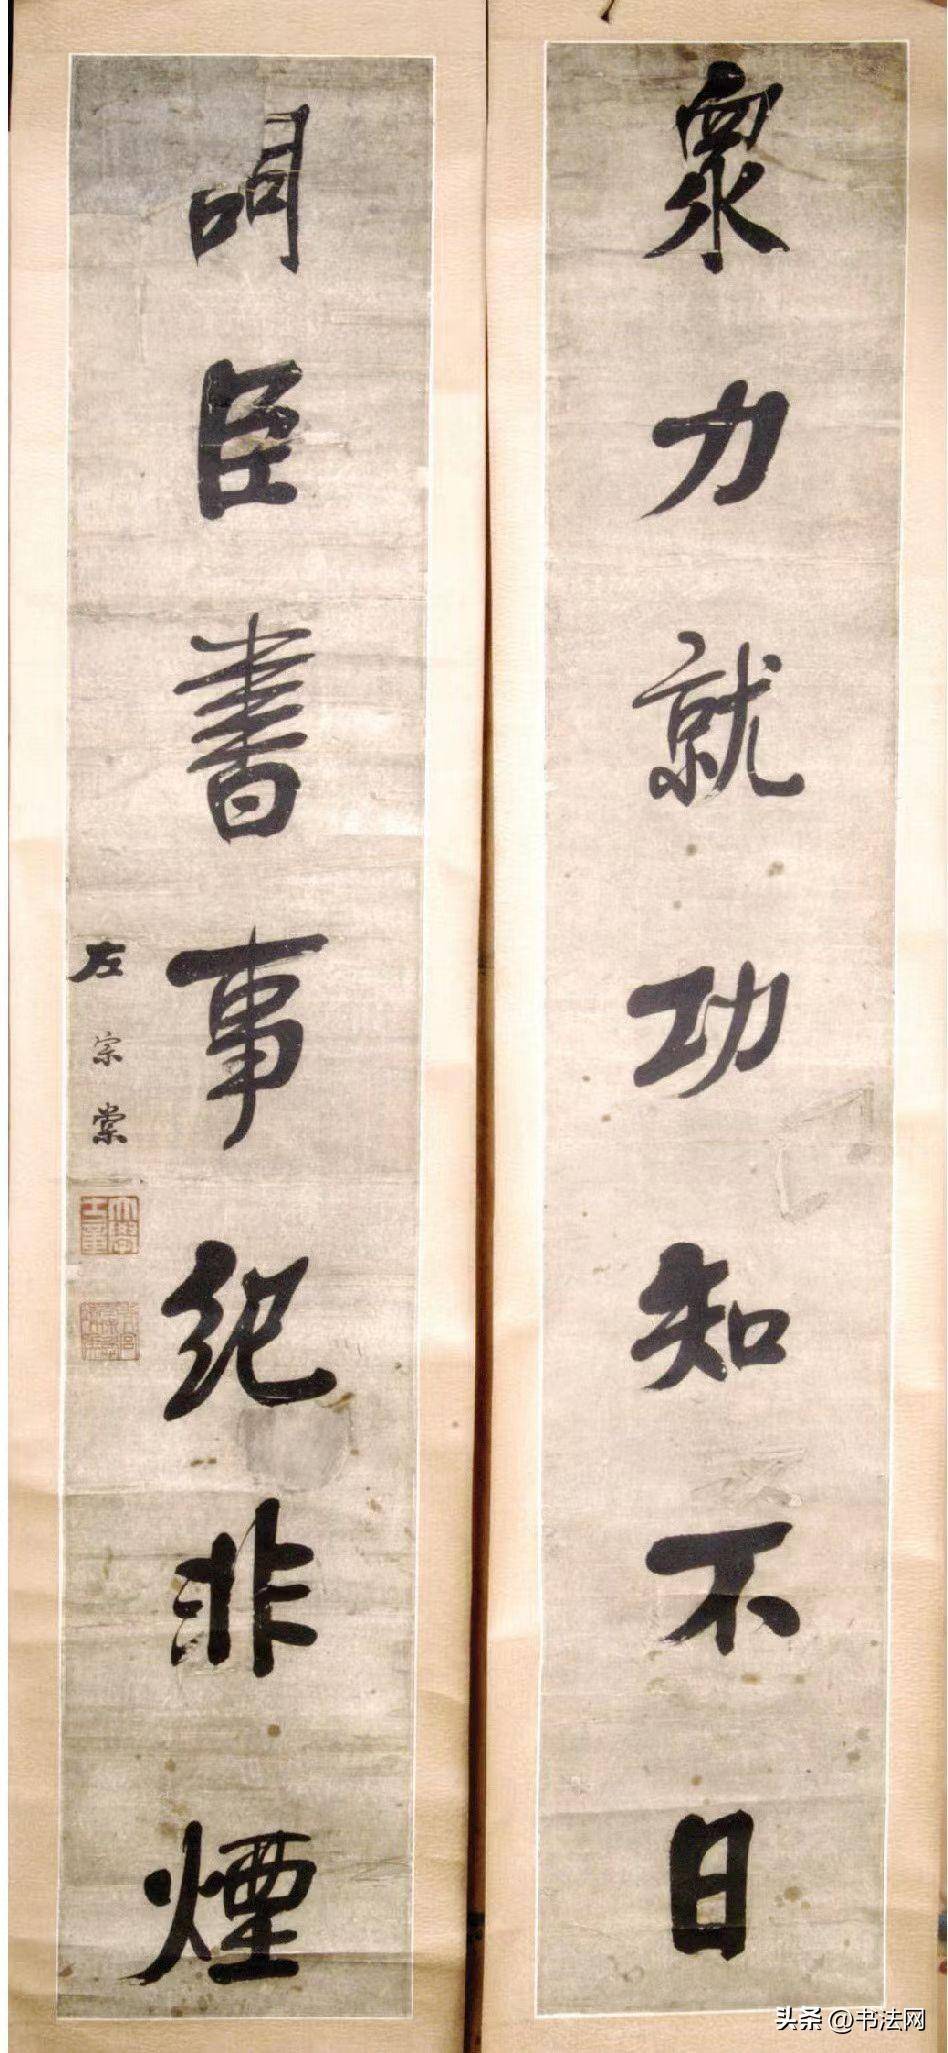 眾力就功知不日
詞臣書事紀非煙
左宗棠
头条 @书法网